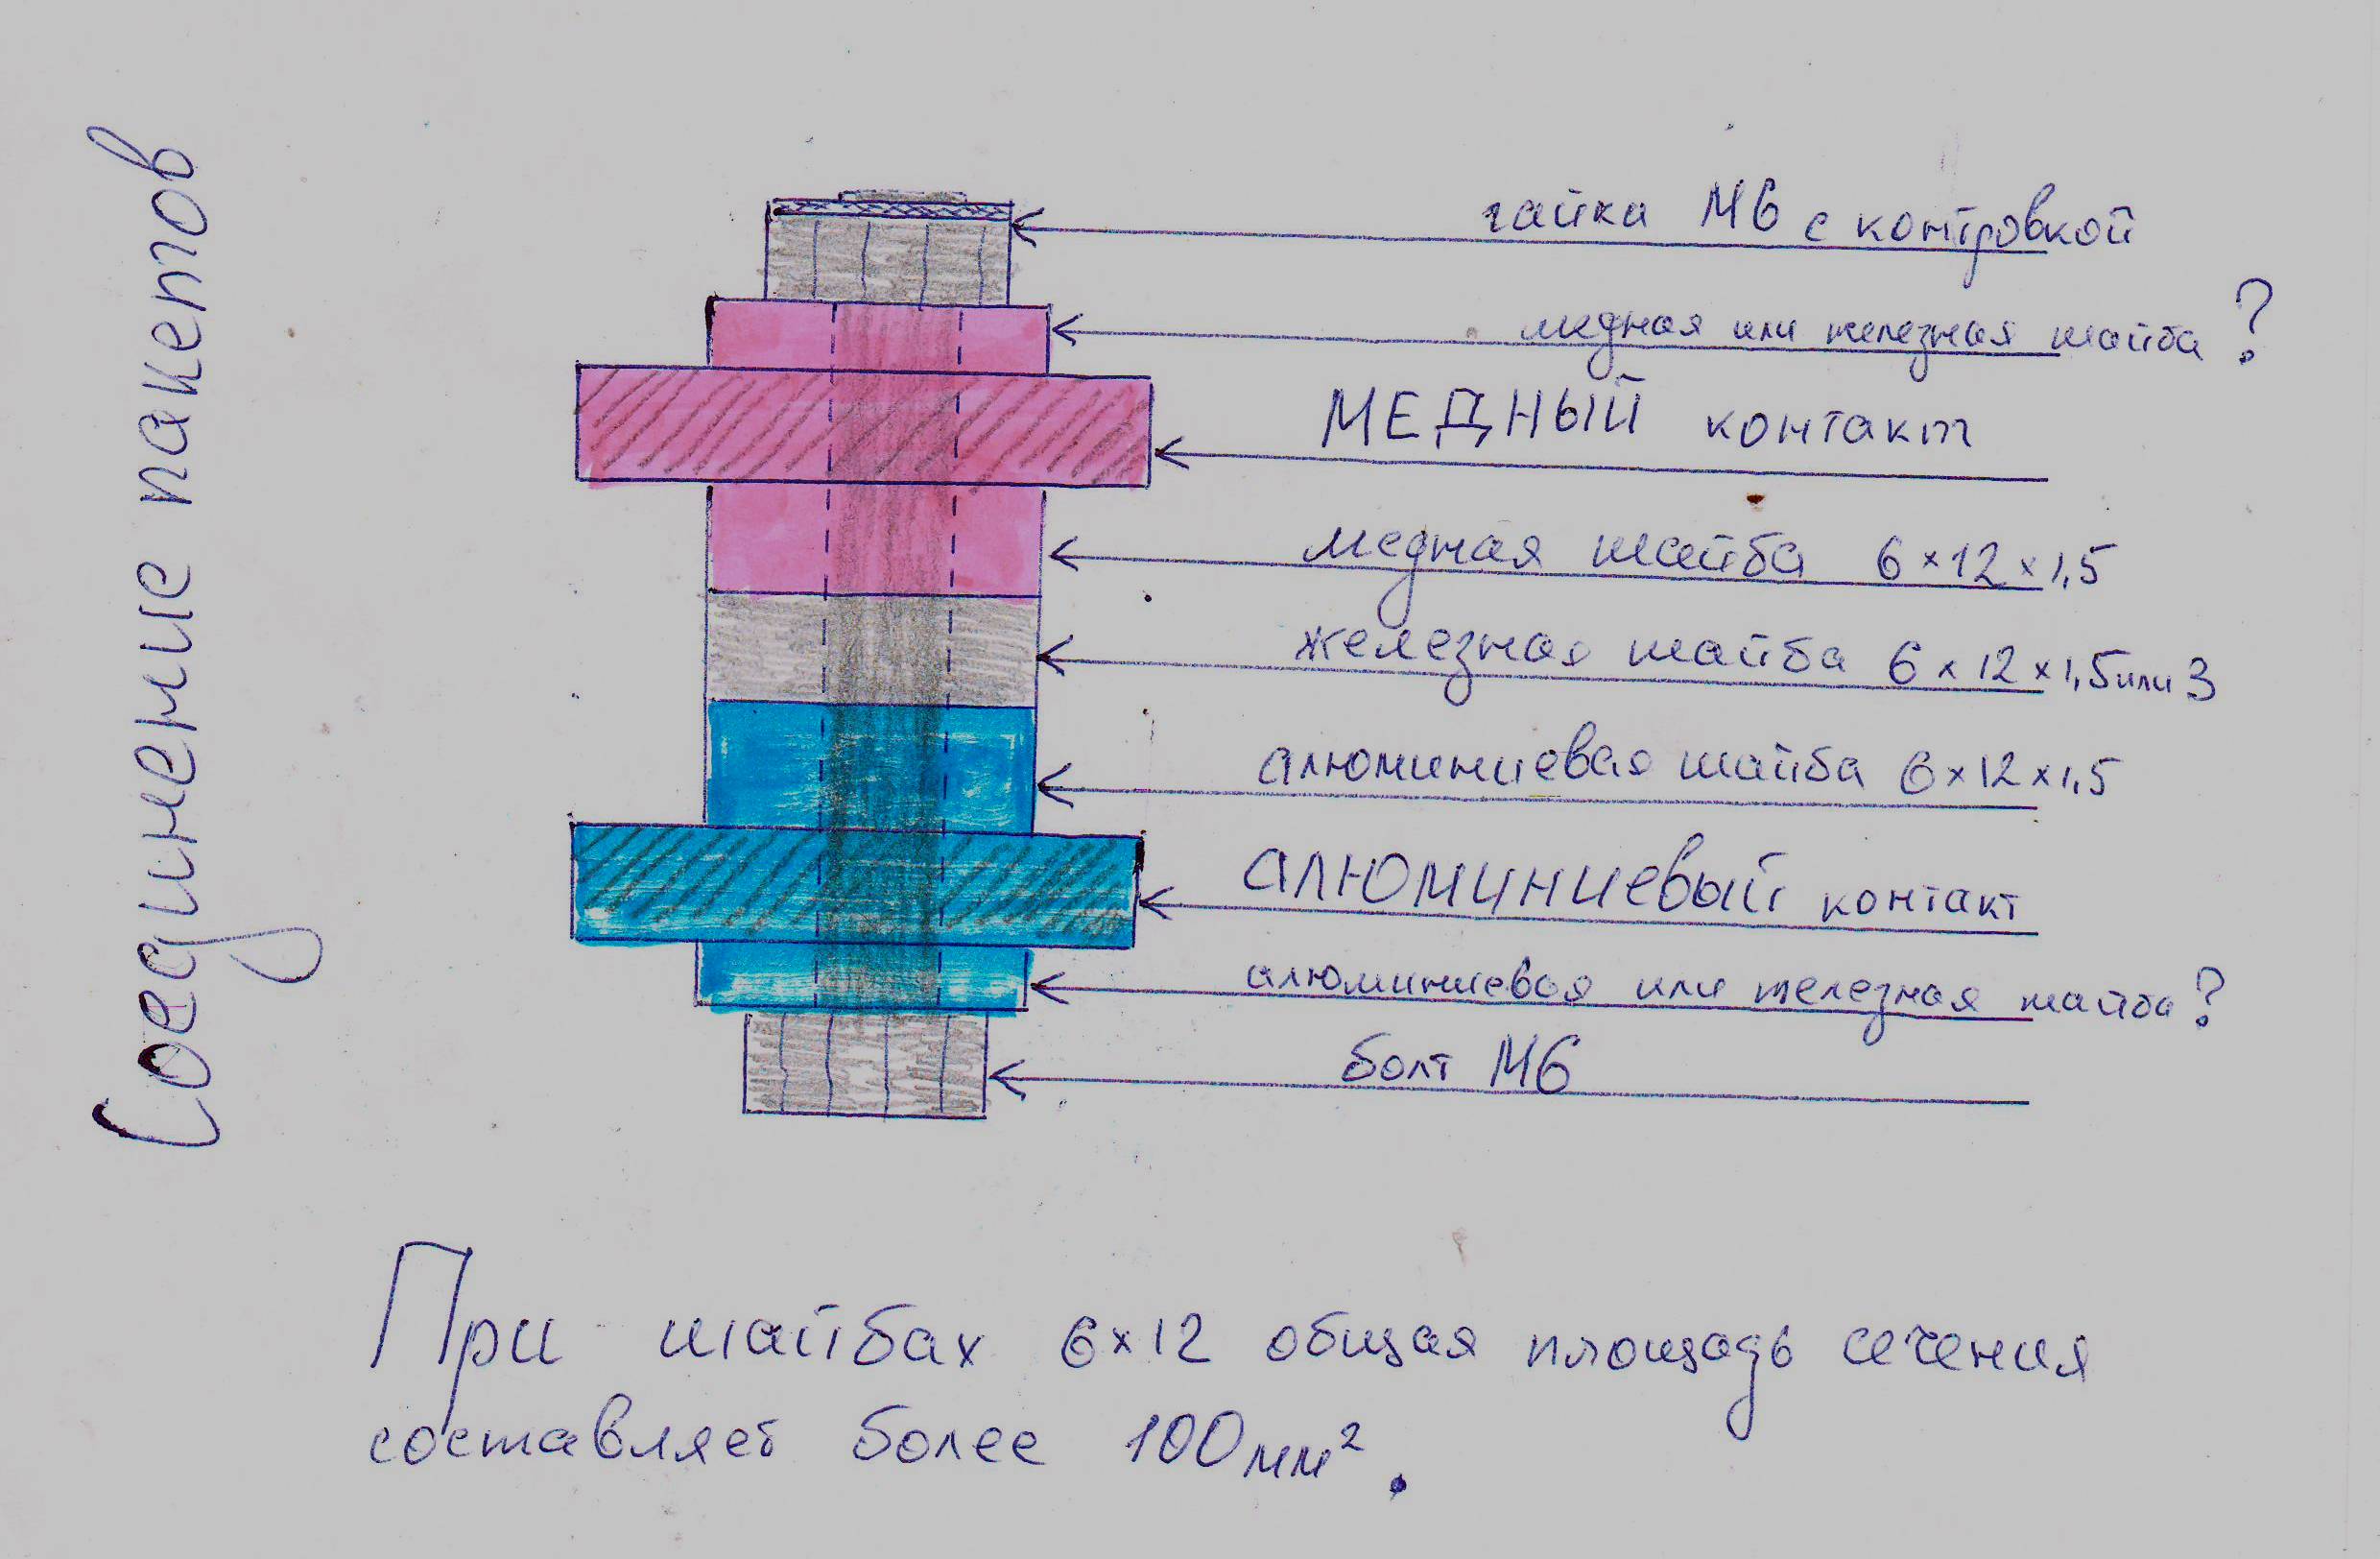 Соединение пакетов
гайка М6 с контровкой
медная или железная шайба ?
МЕДНЫЙ контакт
медная шайба 6×12×1,5
железная шайба 6×12×1,5 или 3
алюминиевая шайба 6×12×1,5
АЛЮМИНИЕВЫЙ контакт
алюминиевая или железная шайба?
болт М6
При шайбах 6×12 общая площадь сечения
составляет более 100мм².